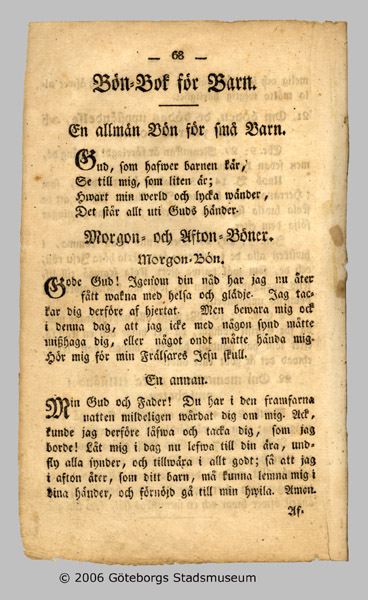 — 68 —
Bön-Bok för Barn.
En allmän Bön för små Barn.
Gud, som hafwer barnen kär,
Se till mig, som liten är;
Hwart min werld och lycka wänder,
Det står allt uti Guds händer.
Morgon- och Afton-Böner.
Morgon-Bön.
Gode Gud! Igenom din nåd har jag nu åter
fått wakna med helsa och glädje. Jag tac-
kar dig derföre af hjertat. Men bewara mig ock
i denna dag, att jag icke med någon synd måtte
mißhaga dig, eller något ondt måtte hända mig.
Hör mig för min Frälsares Jesu skull.
En annan.
Min Gud och Fader! Du har i den framfarna
natten mildeligen wårdat dig om mig. Ack,
kunde jag derföre läfwa och tacka dig, som jag
borde! Låt mig i dag nu lefwa till din ära, und-
fly alla synder, och tillwäxa i allt godt; så att jag
i afton åter, som ditt barn, må kunna lemna mig i
dina händer, och förnöjd gå till min hwila. Amen.
Af-
© 2006 Göteborgs Stadsmuseum